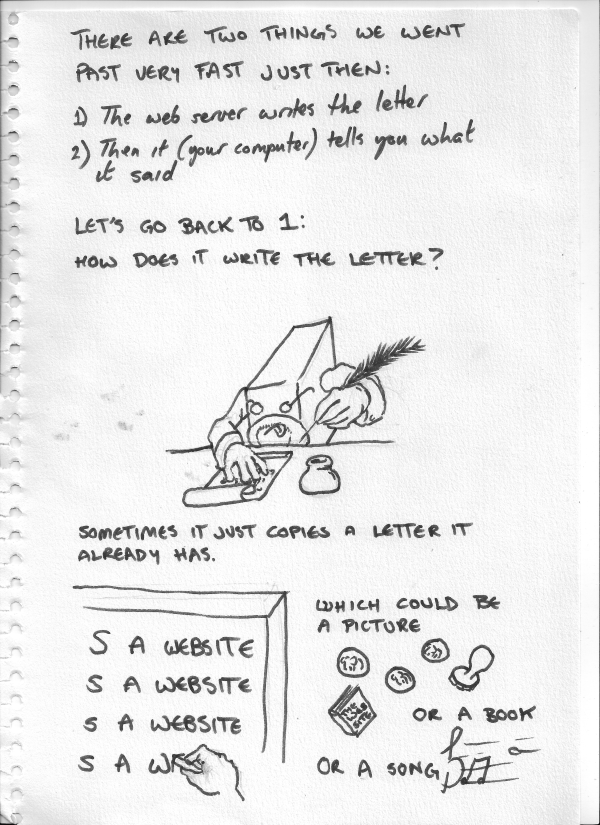 THERE ARE TWO THINGS WE WENT
PAST VERY FAST JUST THEN:
1) The web server writes the letter
2) Then it (your computer) tells you what
it said
LET'S GO BACK TO 1:
HOW DOES IT WRITE THE LETTER?
SOMETIMES IT JUST COPIES A LETTER IT
ALREADY HAS.
S A WEBSITE
S A WEBSITE
S A WEBSITE
S A WE
WHICH COULD BE
A PICTURE
THE WEB
SITE
OR A BOOK
OR A SONG